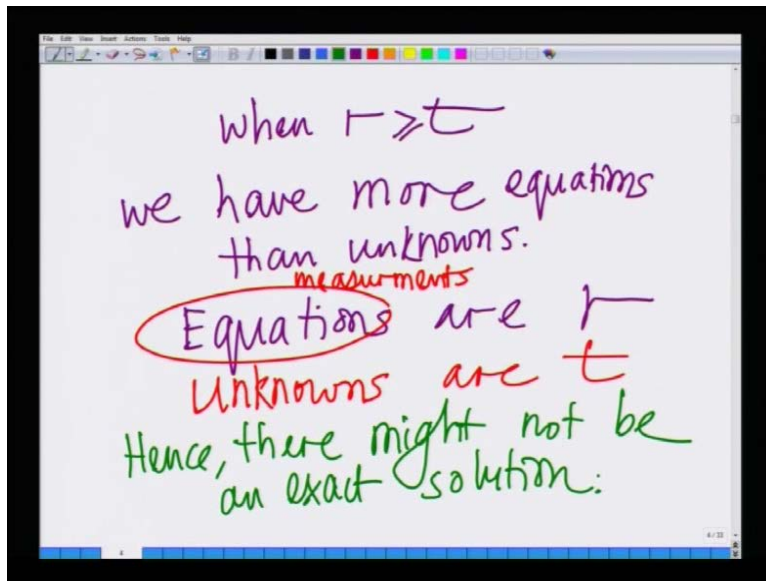 File Edit View Insert Actions Tools Help
B I
when r ⩾ t
we have more equations
than unknowns.
measurments
Equations are r
Unknowns are t
Hence, there might not be
an exact solution.
4/33
4